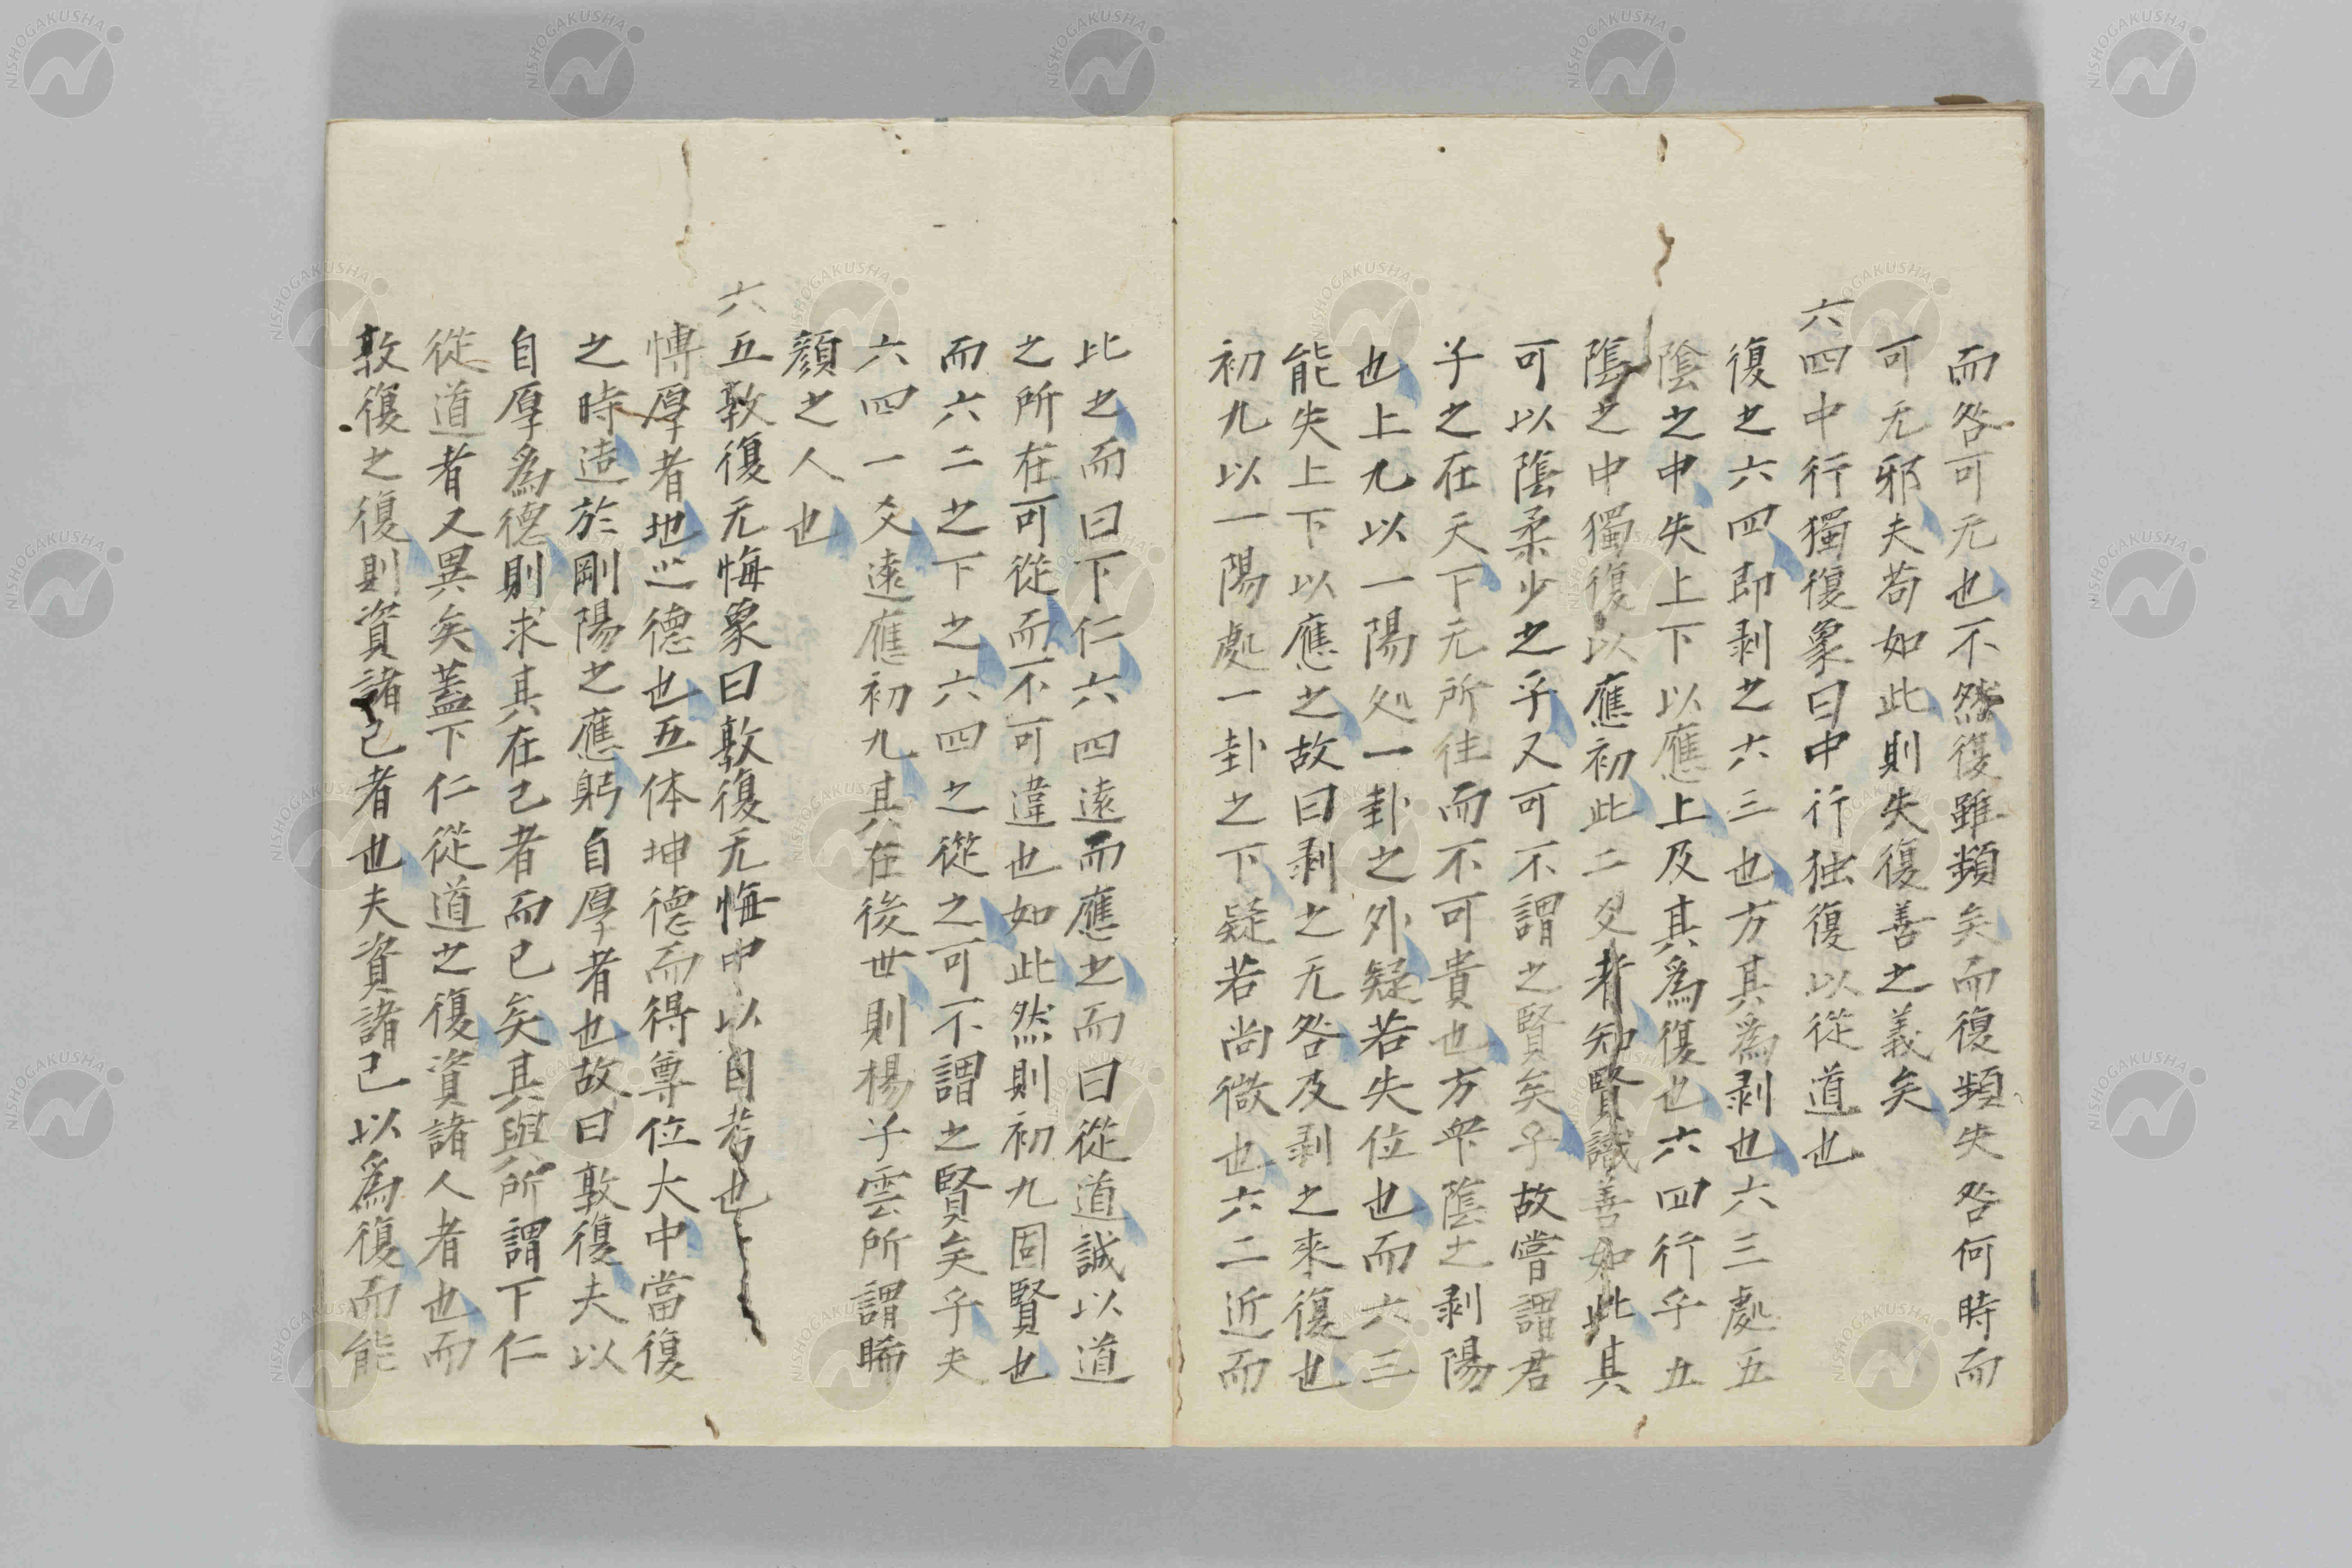 而咎可无也不然復雖頻矣而復頻失咎何時而
可无邪夫苟如此則失復善之義矣
六四中行獨復象曰中行独復以從道也
復之六四即剥之六三也方其為剥也六三處五
陰之中失上下以應上及其為復也六四行乎五
陰之中獨復以應初此二爻者知賢識善如此其
可以陰柔少之乎又可不謂之賢矣乎故嘗謂君
子之在天下无所往而不可貴也方衆陰之剥陽
也上九以一陽処一卦之外疑若失位也而六三
能失上下以應之故曰剥之无咎及剥之來復也
初九以一陽處一卦之下疑若尚微也六二近而
比之而曰下仁六四遠而應之而曰從道誠以道
之所在可從而不可違也如此然則初九固賢也
而六二之下之六四之從之可不謂之賢矣乎夫
六四一爻遠應初九其在後世則楊子雲所謂睎
顔之人也
六五敦復无悔象曰敦復无悔中以自考也
博厚者地之德也五体坤德而得尊位大中當復
之時遠於剛陽之應躬自厚者也故曰敦復夫以
自厚為德則求其在己者而已矣其與所謂下仁
從道者又異矣蓋下仁從道之復資諸人者也而
敦復之復則資諸己者也夫資諸己以為復而能
NISHOGAKUSHA